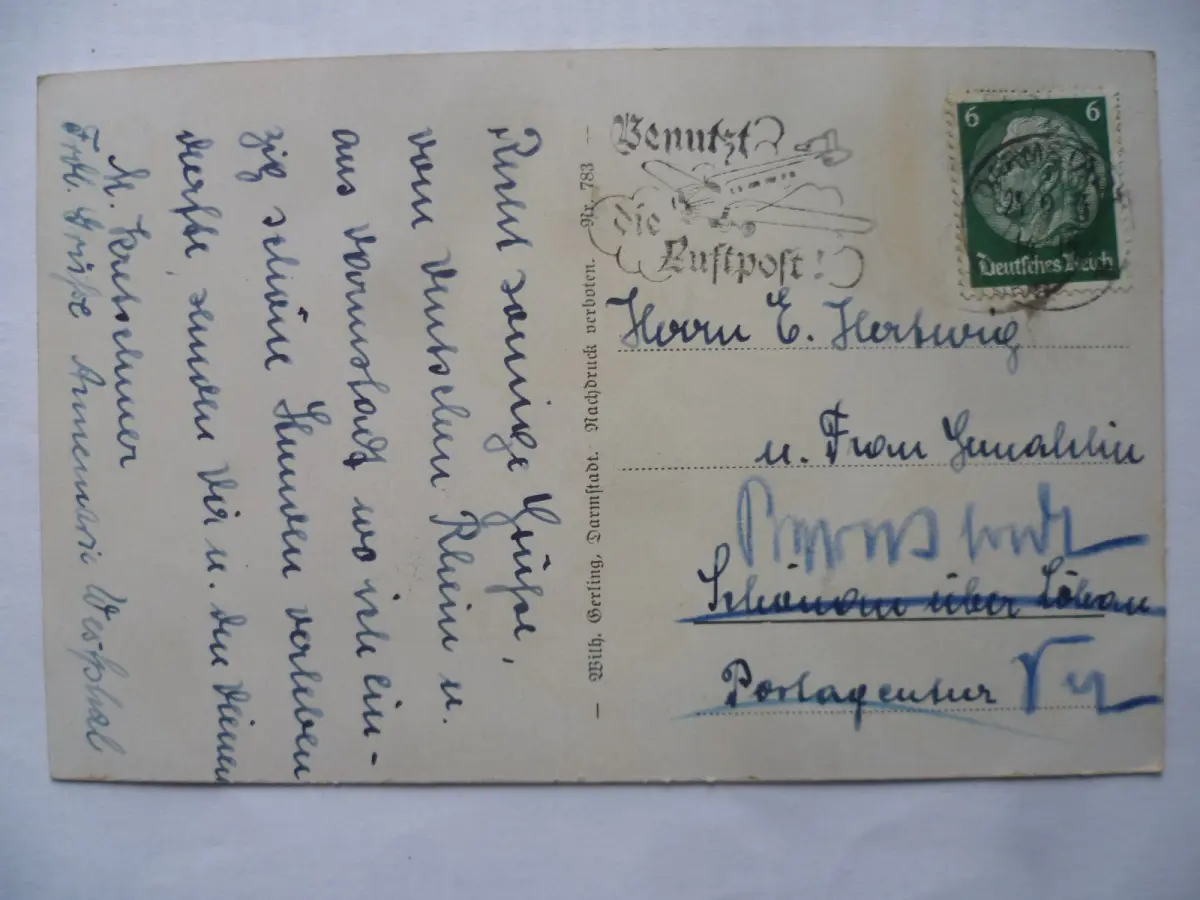 Recht sonnige Grüße,
vom deutschen Rhein u.
aus Darmstadt wo ich ein-
zig schöne Stunden verleben
durfte, senden Dir u. den Deinen
M. Kretschmer
Frdl. Grüße Annemarie Westphal
— Wilh. Gerling, Darmstadt. Nachdruck verboten. Nr. 783 —
Benutzt
die
Luftpost!
6 6
Deutsches Reich
Herrn E. Hertwig
u. Frau Gemahlin
Schönau über Löbau
Postagentur